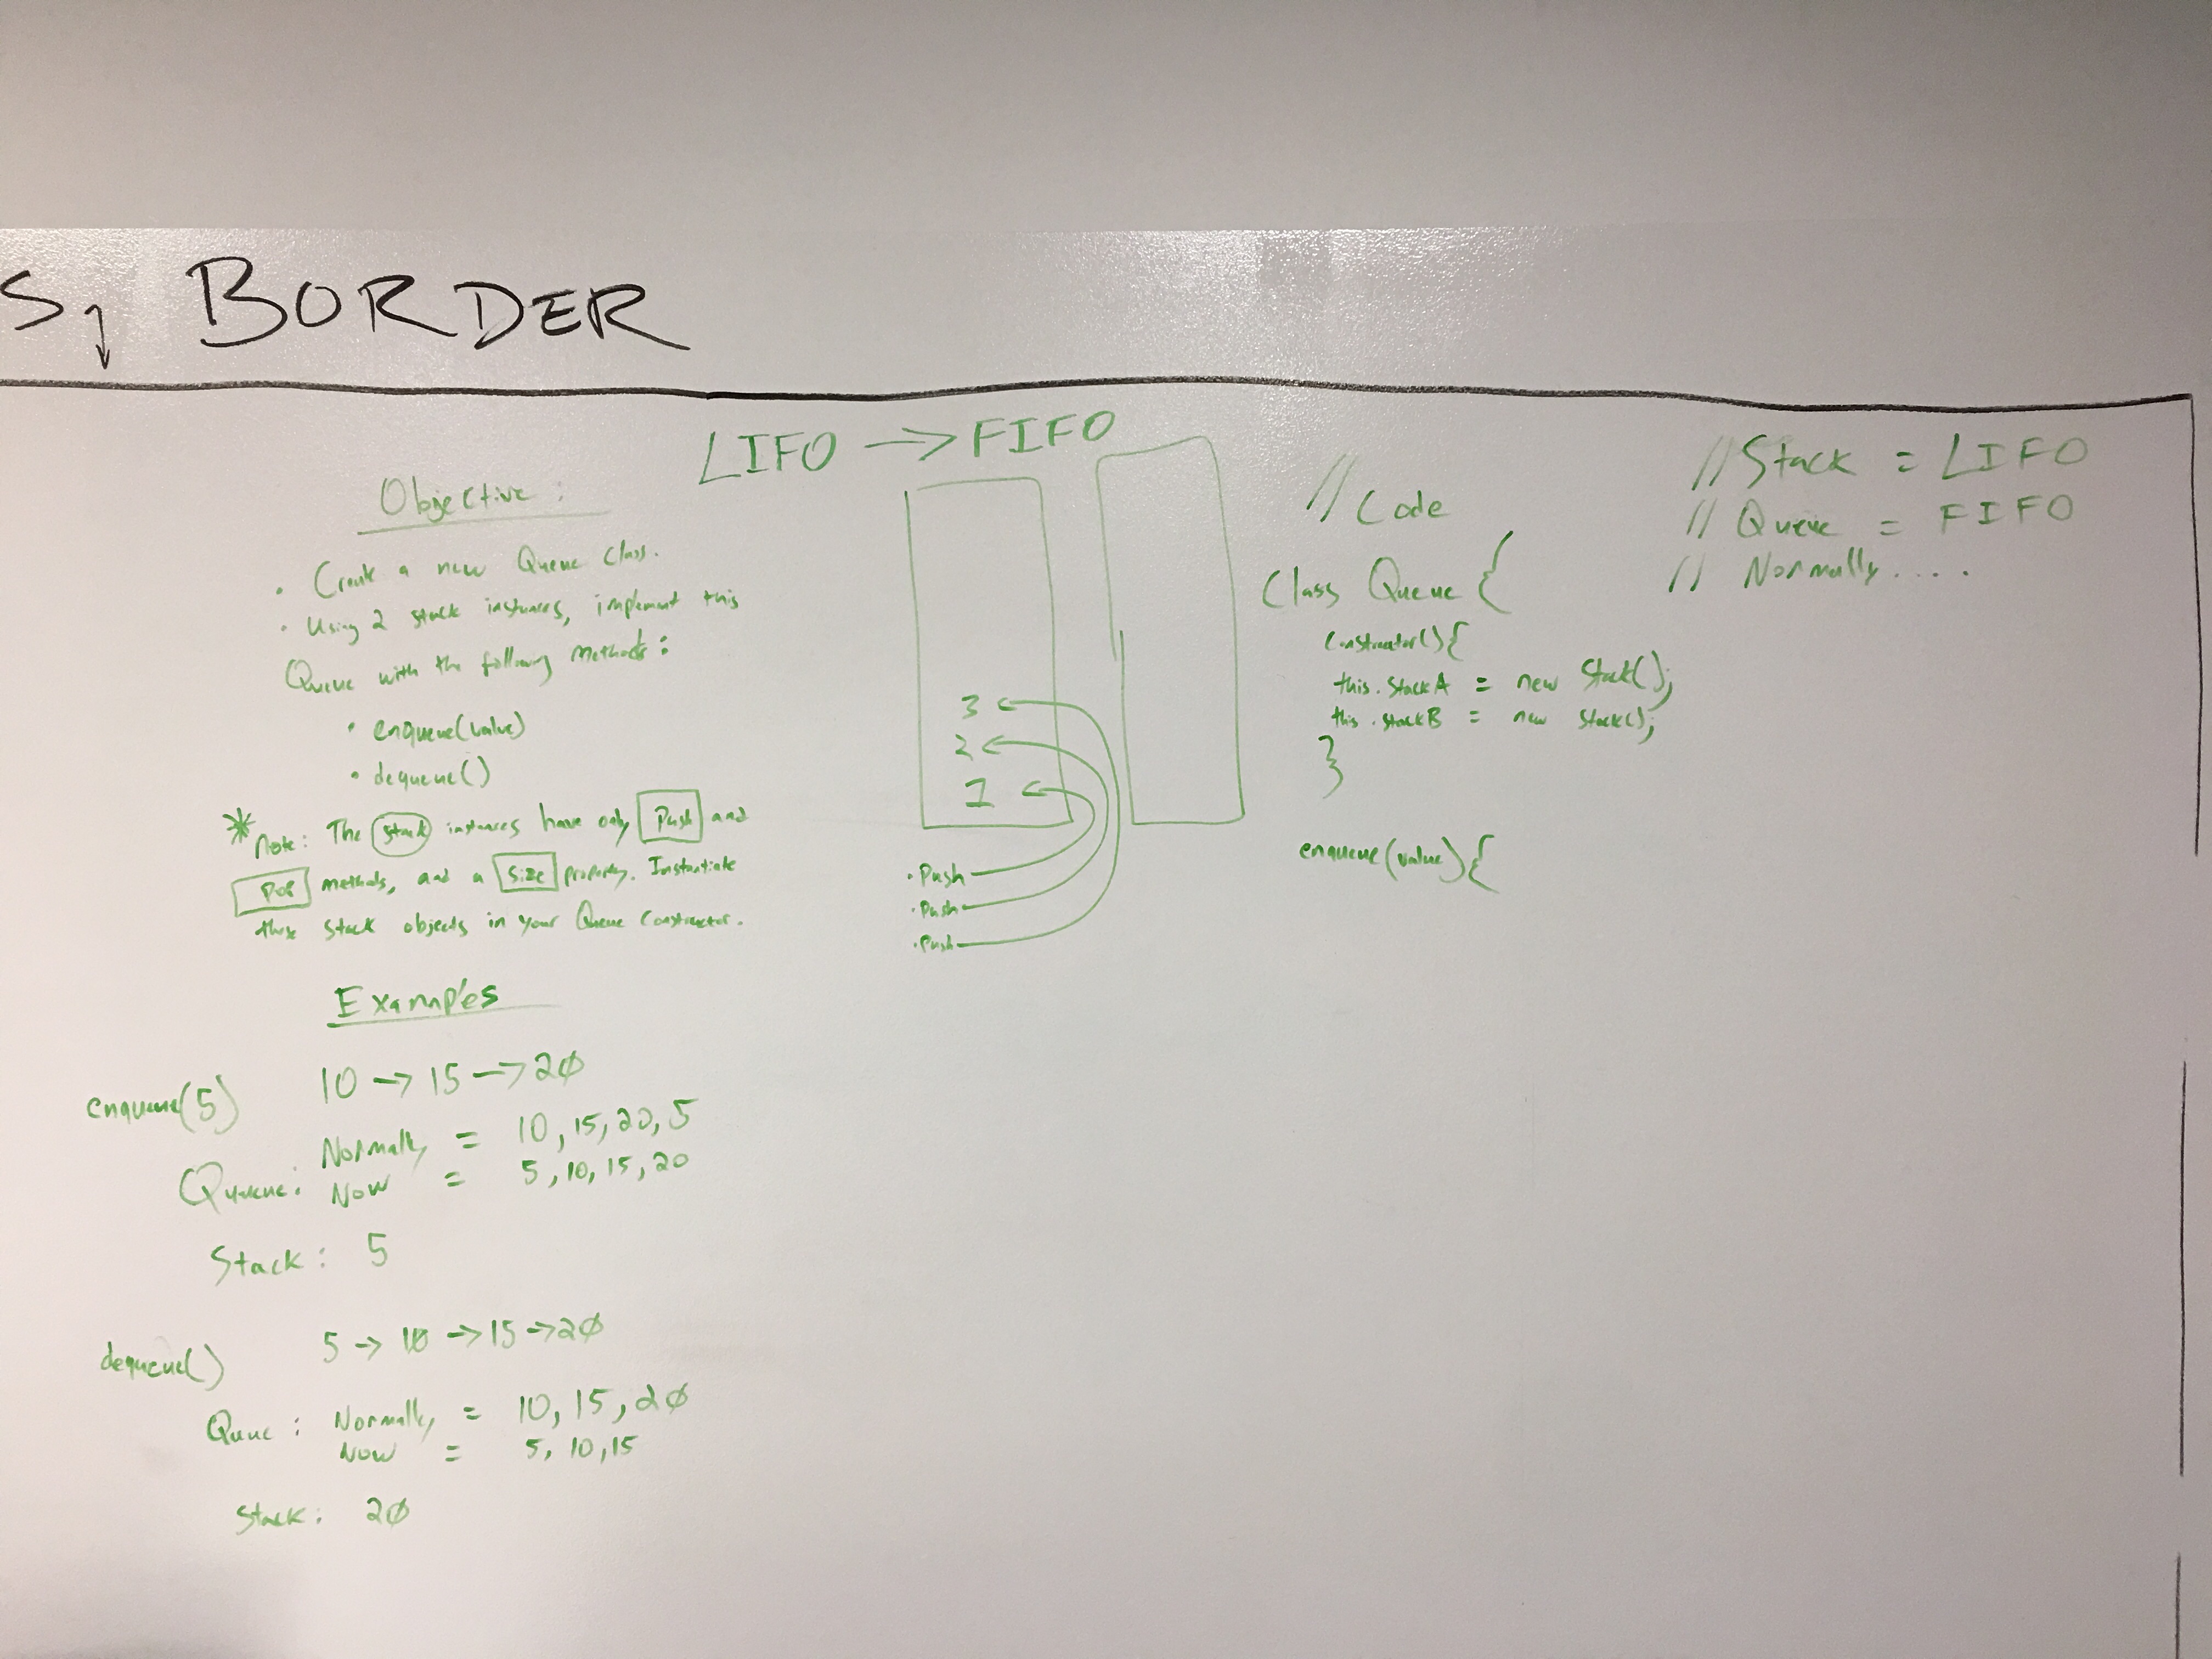 S, BORDER
LIFO → FIFO
Objective:
• Create a new Queue class.
• Using 2 stack instances, implement this
Queue with the following methods:
• enqueue(value)
• dequeue()
* Note: The stack instances have only Push and
Pop methods, and a Size property. Instantiate
these stack objects in your Queue constructor.
Examples
enqueue(5) 10 → 15 → 20
Queue: Normally = 10, 15, 20, 5
Now = 5, 10, 15, 20
Stack: 5
dequeue() 5 → 10 → 15 → 20
Queue: Normally = 10, 15, 20
Now = 5, 10, 15
Stack: 20
3
2
1
• Push
• Push
• Push
// Code
Class Queue {
constructor(){
this.stackA = new Stack();
this.stackB = new Stack();
}
enqueue(value){
// Stack = LIFO
// Queue = FIFO
// Normally....